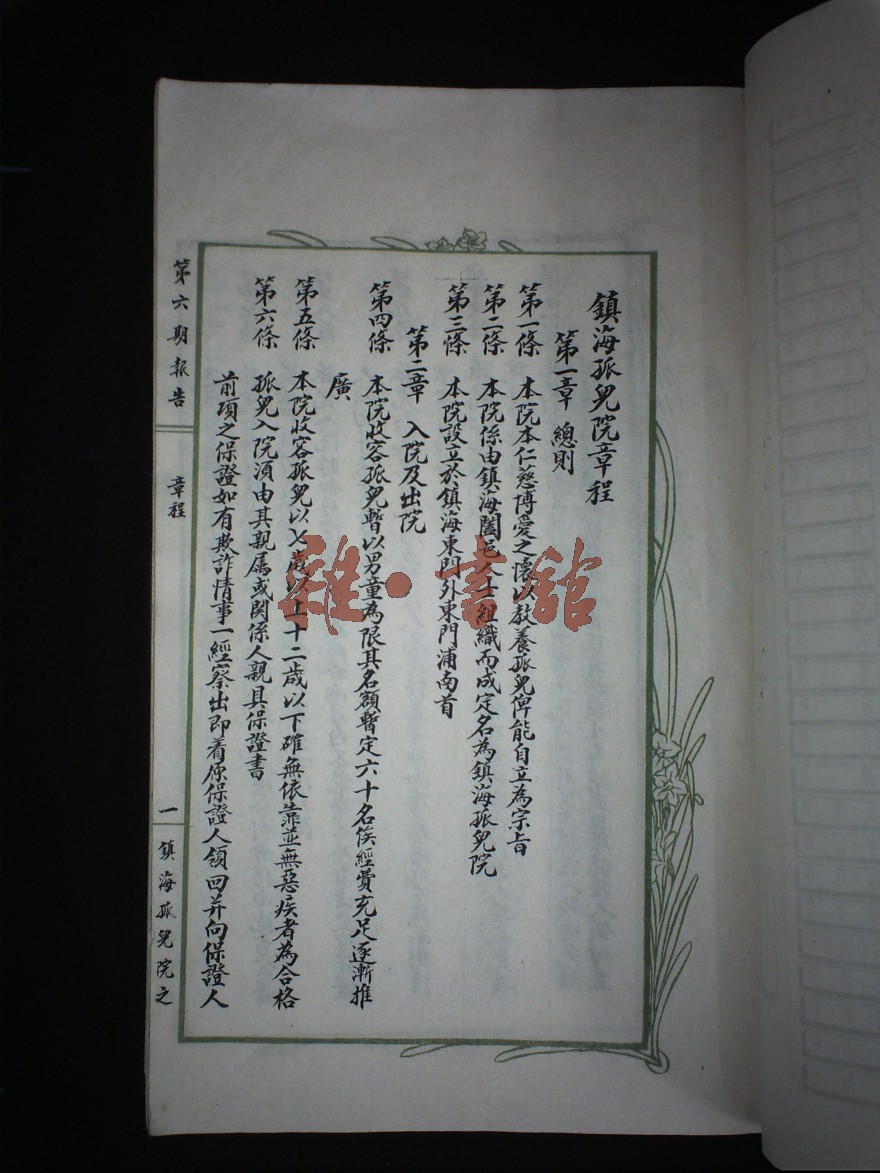 鎮海孤兒院章程
第一章 總則
第一條 本院本仁慈博愛之懷以教養孤兒俾能自立為宗旨
第二條 本院係由鎮海闔邑人士組織而成定名為鎮海孤兒院
第三條 本院設立於鎮海東門外東門浦南首
第二章 入院及出院
第四條 本院收容孤兒暫以男童為限其名額暫定六十名俟經費充足逐漸推
廣
第五條 本院收容孤兒以七歲以上十二歲以下確無依靠並無惡疾者為合格
第六條 孤兒入院須由其親屬或関係人親具保證書
前項之保證如有欺詐情事一經察出即着原保證人領回并向保證人
第六期報告
章程
一
鎮海孤兒院之
雜·書舘